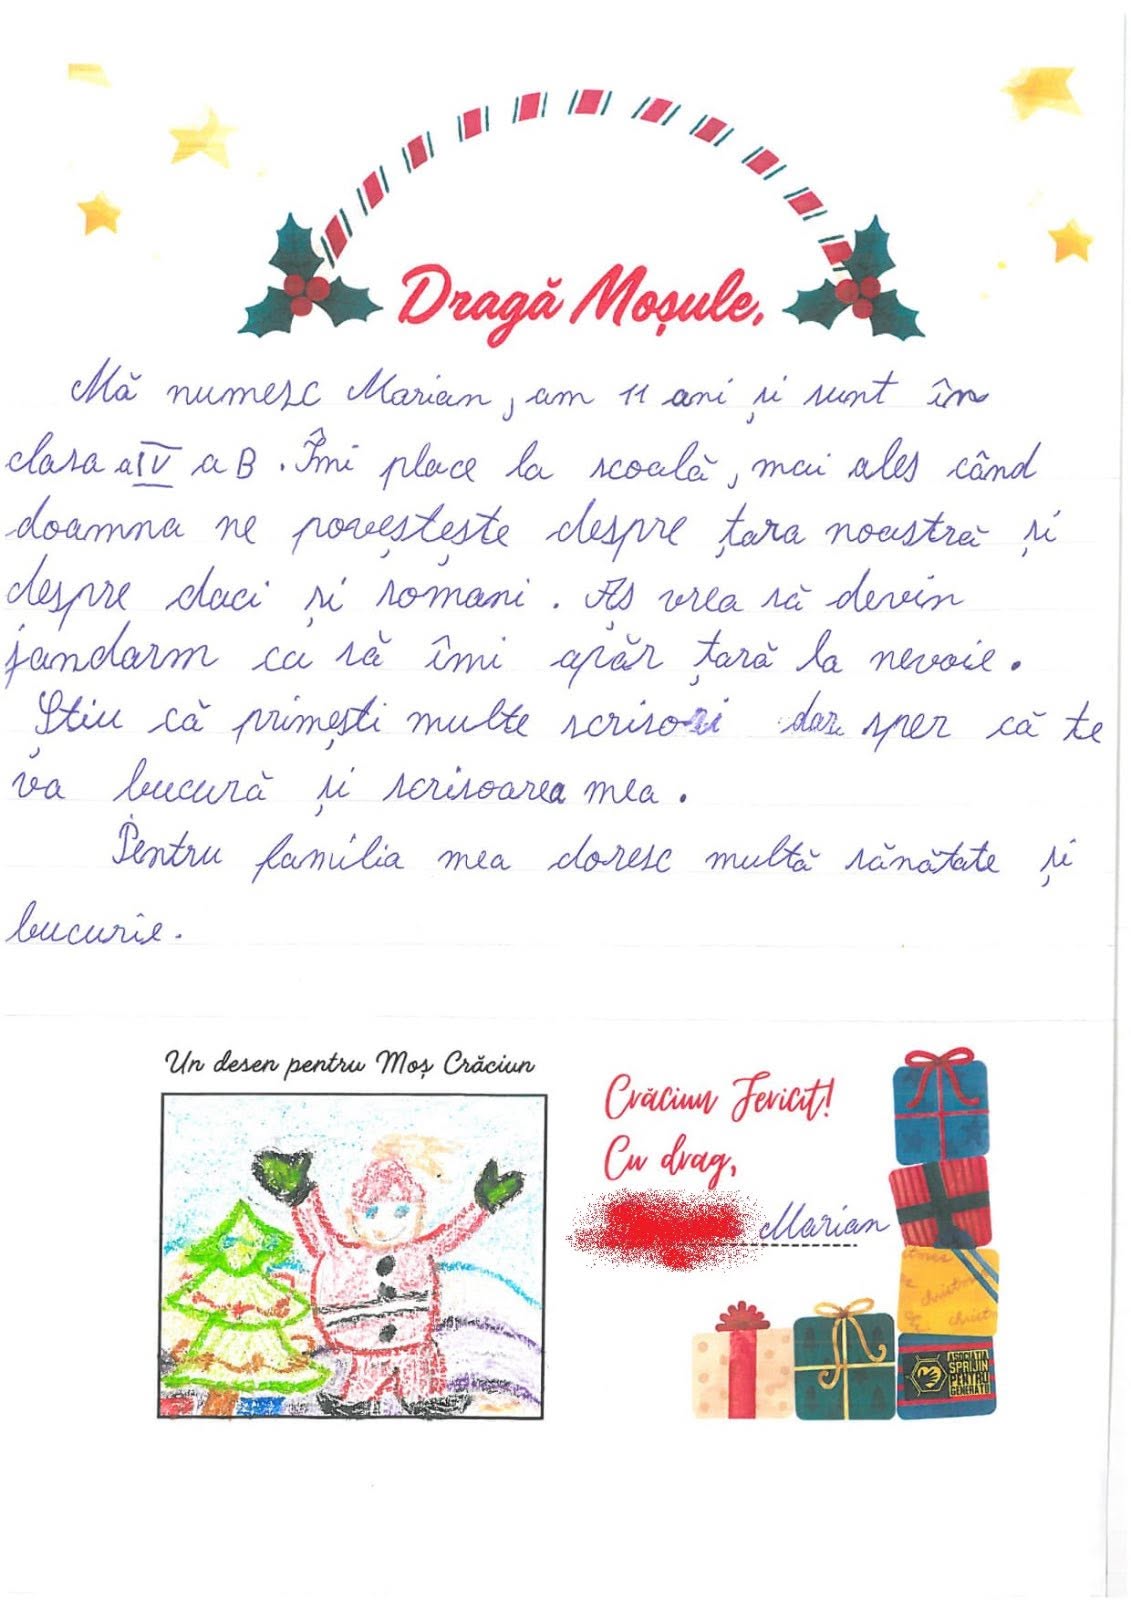 Dragă Moșule,
Mă numesc Marian, am 11 ani și sunt în
clasa a IV a B. Îmi place la scoală, mai ales când
doamna ne poveștește despre țara noastră și
despre daci și romani. Aș vrea să devin
jandarm ca să îmi apăr țară la nevoie.
Știu că primești multe scrisori dar sper că te
va bucură și scrisoarea mea.
Pentru familia mea doresc multă sănătate și
bucurie.
Un desen pentru Moș Crăciun
Crăciun Fericit!
Cu drag,
Marian
christmas
christ
ASOCIAȚIA
SPRIJIN
PENTRU
GENERAȚII